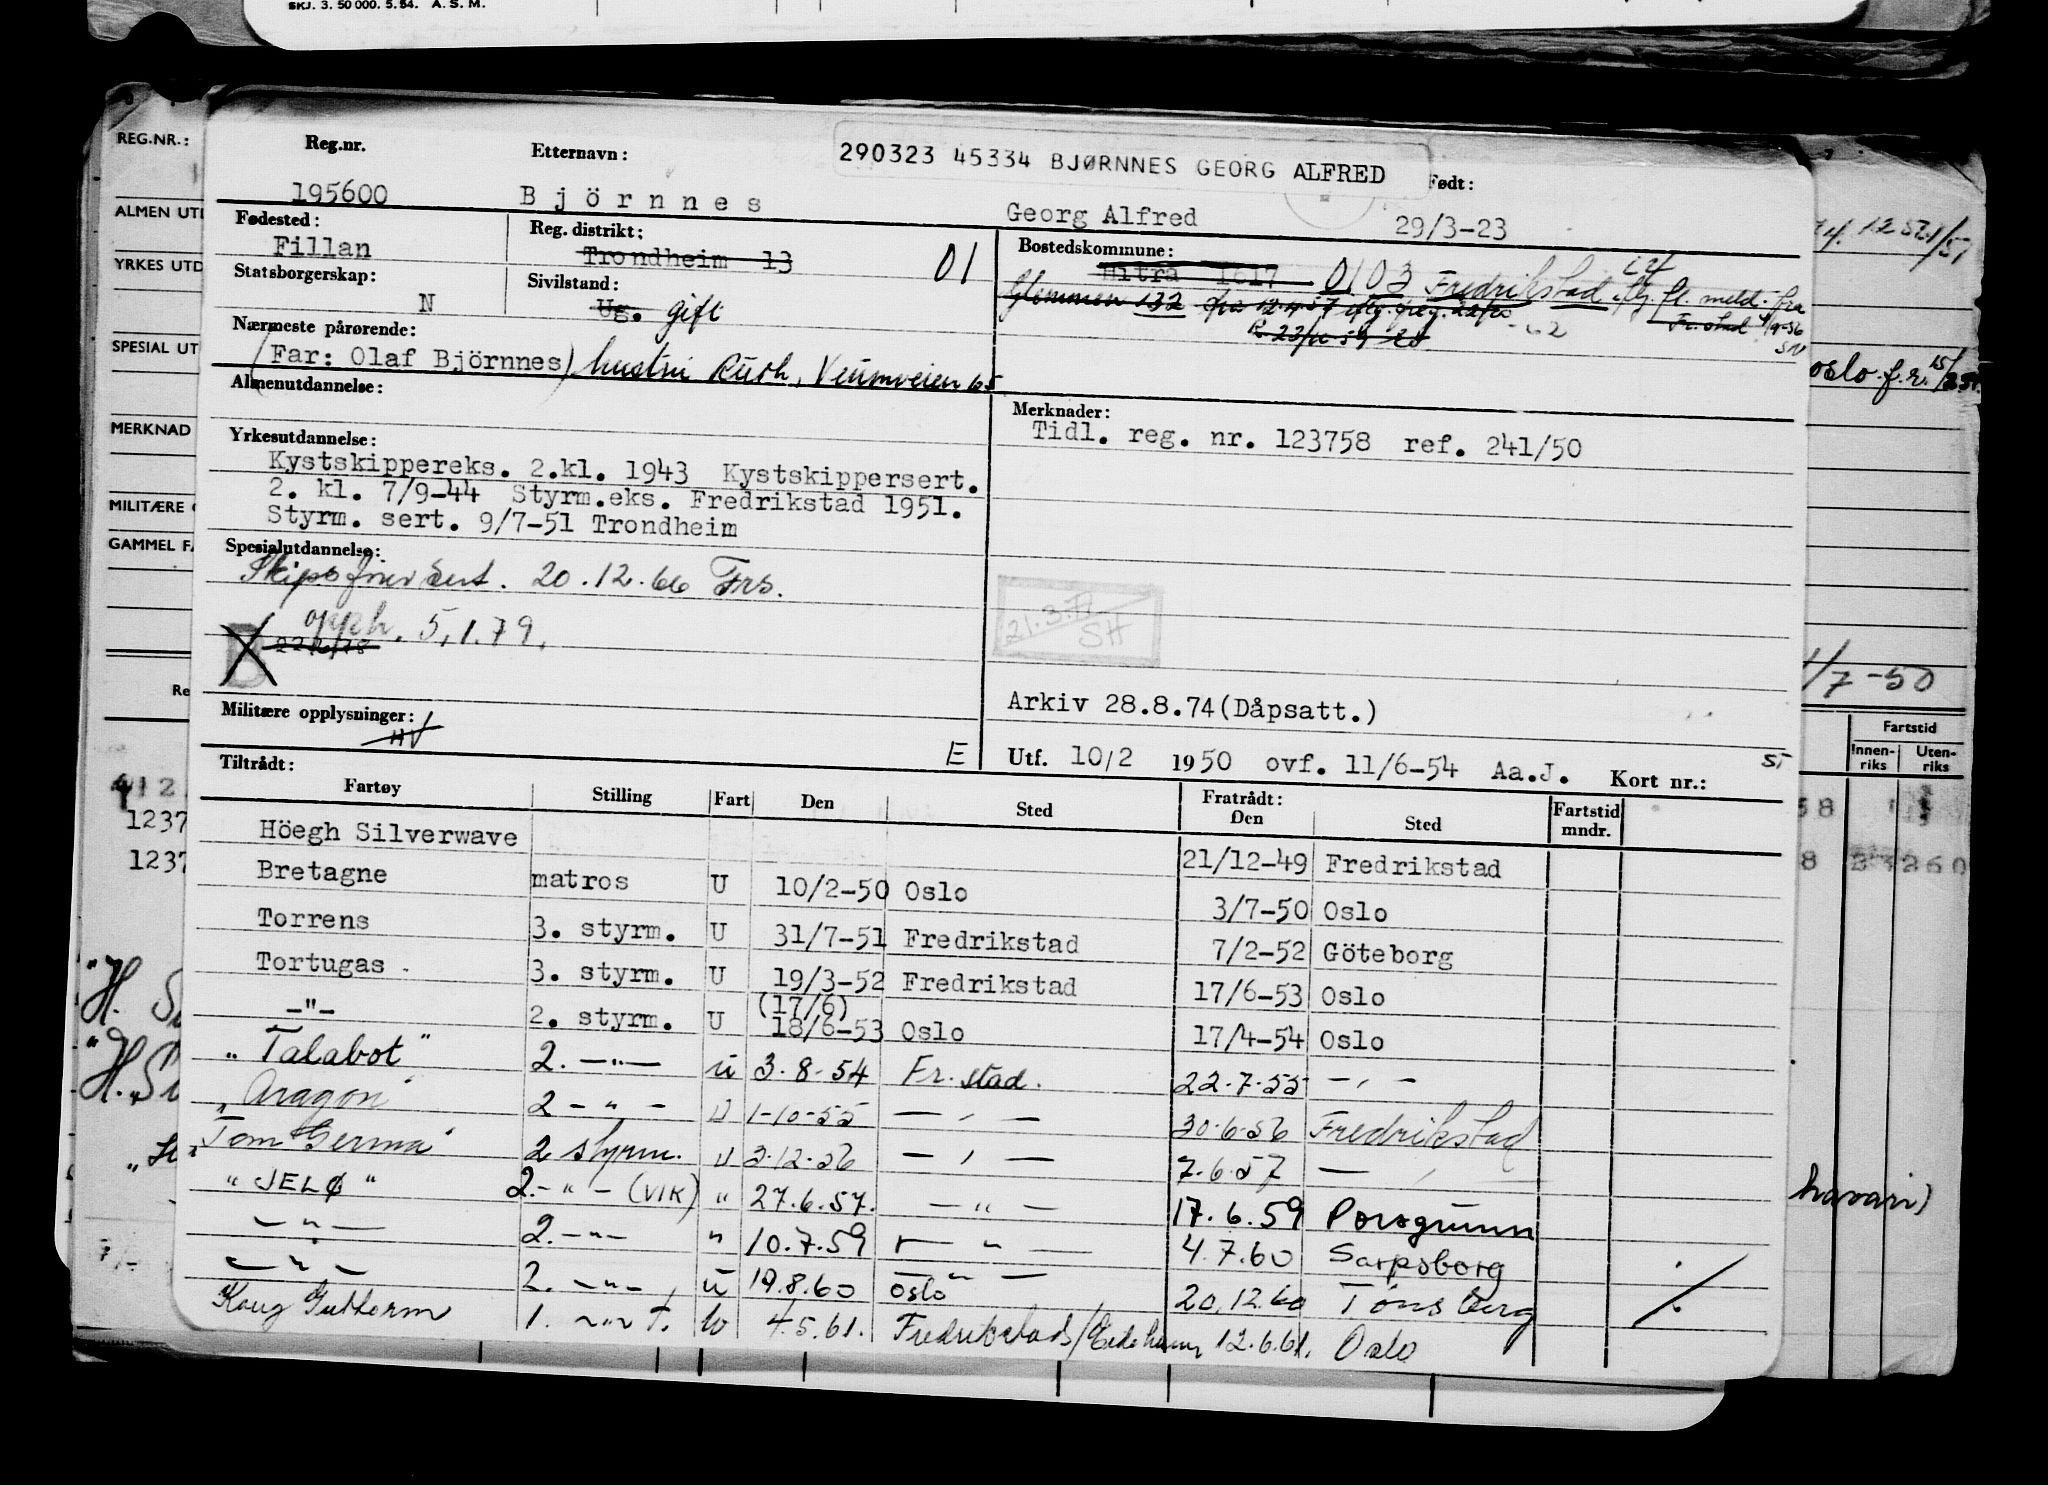 SKJ. 3. 50 000. 5. 54. A. S. M.
REG.NR.:
ALMEN UTD
YRKES UTD
SPESIAL UT
MERKNAD
MILITÆRE
GAMMEL FA
Reg.nr.
Etternavn:
290323 45334 BJØRNNES GEORG ALFRED
Født:
195600 Björnnes Georg Alfred 29/3-23
Fødested: Reg. distrikt: Bostedskommune:
Fillan Trondheim 13 01 Hitra 1617 0103 Fredrikstad
Statsborgerskap: Sivilstand: Glemmen 132
N Ug. gift
Nærmeste pårørende:
(Far: Olaf Björnnes) hustru Ruth, Veumveien 65
Almenutdannelse: Merknader:
Tidl. reg. nr. 123758 ref. 241/50
Yrkesutdannelse:
Kystskippereks. 2.kl. 1943 Kystskippersert.
2. kl. 7/9-44 Styrm.eks. Fredrikstad 1951.
Styrm. sert. 9/7-51 Trondheim
Spesialutdannelse:
Skipsfører sert. 20.12.66 Frs.
opph. 5.1.79.
21.3.72
SH
Arkiv 28.8.74(Dåpsatt.)
Militære opplysninger:
HV
E Utf. 10/2 1950 ovf. 11/6-54 Aa.J. Kort nr.:
Tiltrådt: Fratrådt:
Fartøy Stilling Fart Den Sted Den Sted Fartstid mndr.
Höegh Silverwave 21/12-49 Fredrikstad
Bretagne matros U 10/2-50 Oslo 3/7-50 Oslo
Torrens 3. styrm. U 31/7-51 Fredrikstad 7/2-52 Göteborg
Tortugas 3. styrm. U 19/3-52 Fredrikstad 17/6-53 Oslo
(17/6)
-"- 2. styrm. U 18/6-53 Oslo 17/4-54 Oslo
"Talabot" 2. -"- u 3.8.54 Fr.stad. 22.7.55 -"-
"Aragon" 2 -"- U 1-10-55 -"- 30.6.56 Fredrikstad
2 styrm. U 3.12.56 -"- 7.6.57 -"-
"JELØ" 2. -"- (VIK) " 27.6.57. -"- 17.6.59 Porsgrunn
-"- 2. -"- " 10.7.59 -"- 4.7.60 Sarpsborg
-"- 2. -"- u 19.8.60 Oslo 20.12.60 Tønsberg
Kong Guttorm 1. -"- 4.5.61. Fredrikstad/ 12.6.61. Oslo
oslo.
1/7-50
Fartstid
Innenriks Utenriks
1237
1237
havari)